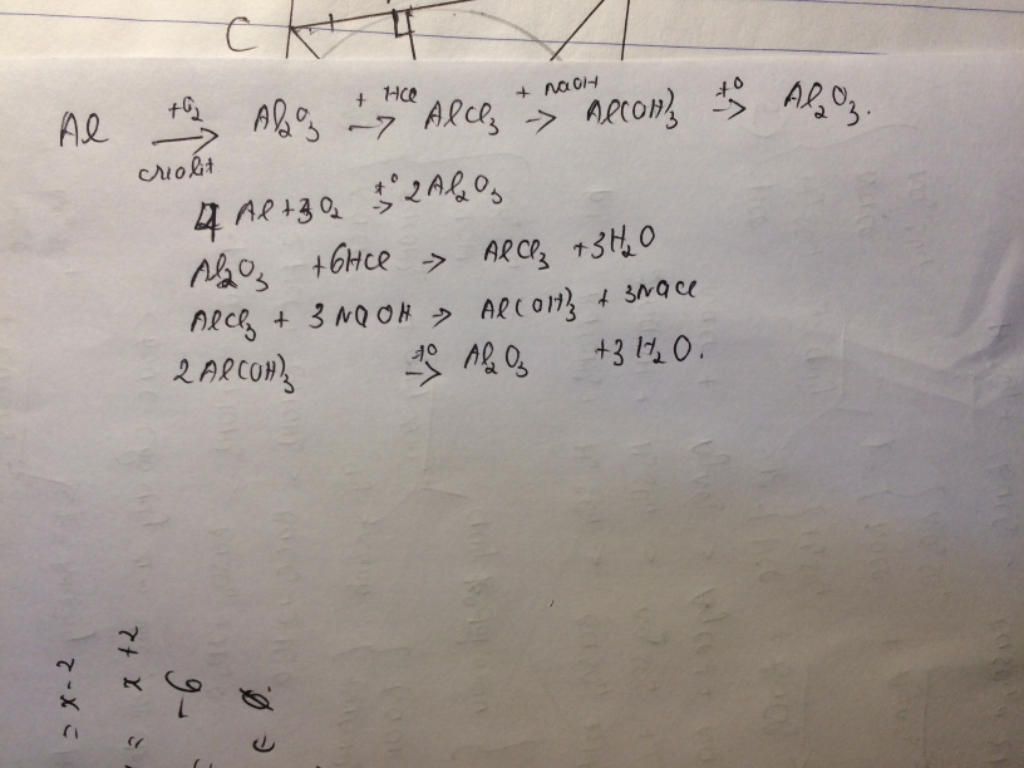 C
Al +O₂ → criolit Al₂O₃ + HCl → AlCl₃ + NaOH → Al(OH)₃ t° → Al₂O₃.
4 Al + 3O₂ t° → 2Al₂O₃
Al₂O₃ + 6HCl → AlCl₃ + 3H₂O
AlCl₃ + 3NaOH → Al(OH)₃ + 3NaCl
2Al(OH)₃ t° → Al₂O₃ + 3H₂O.
= x - 2
= x + 2
-6
∈ ∅.